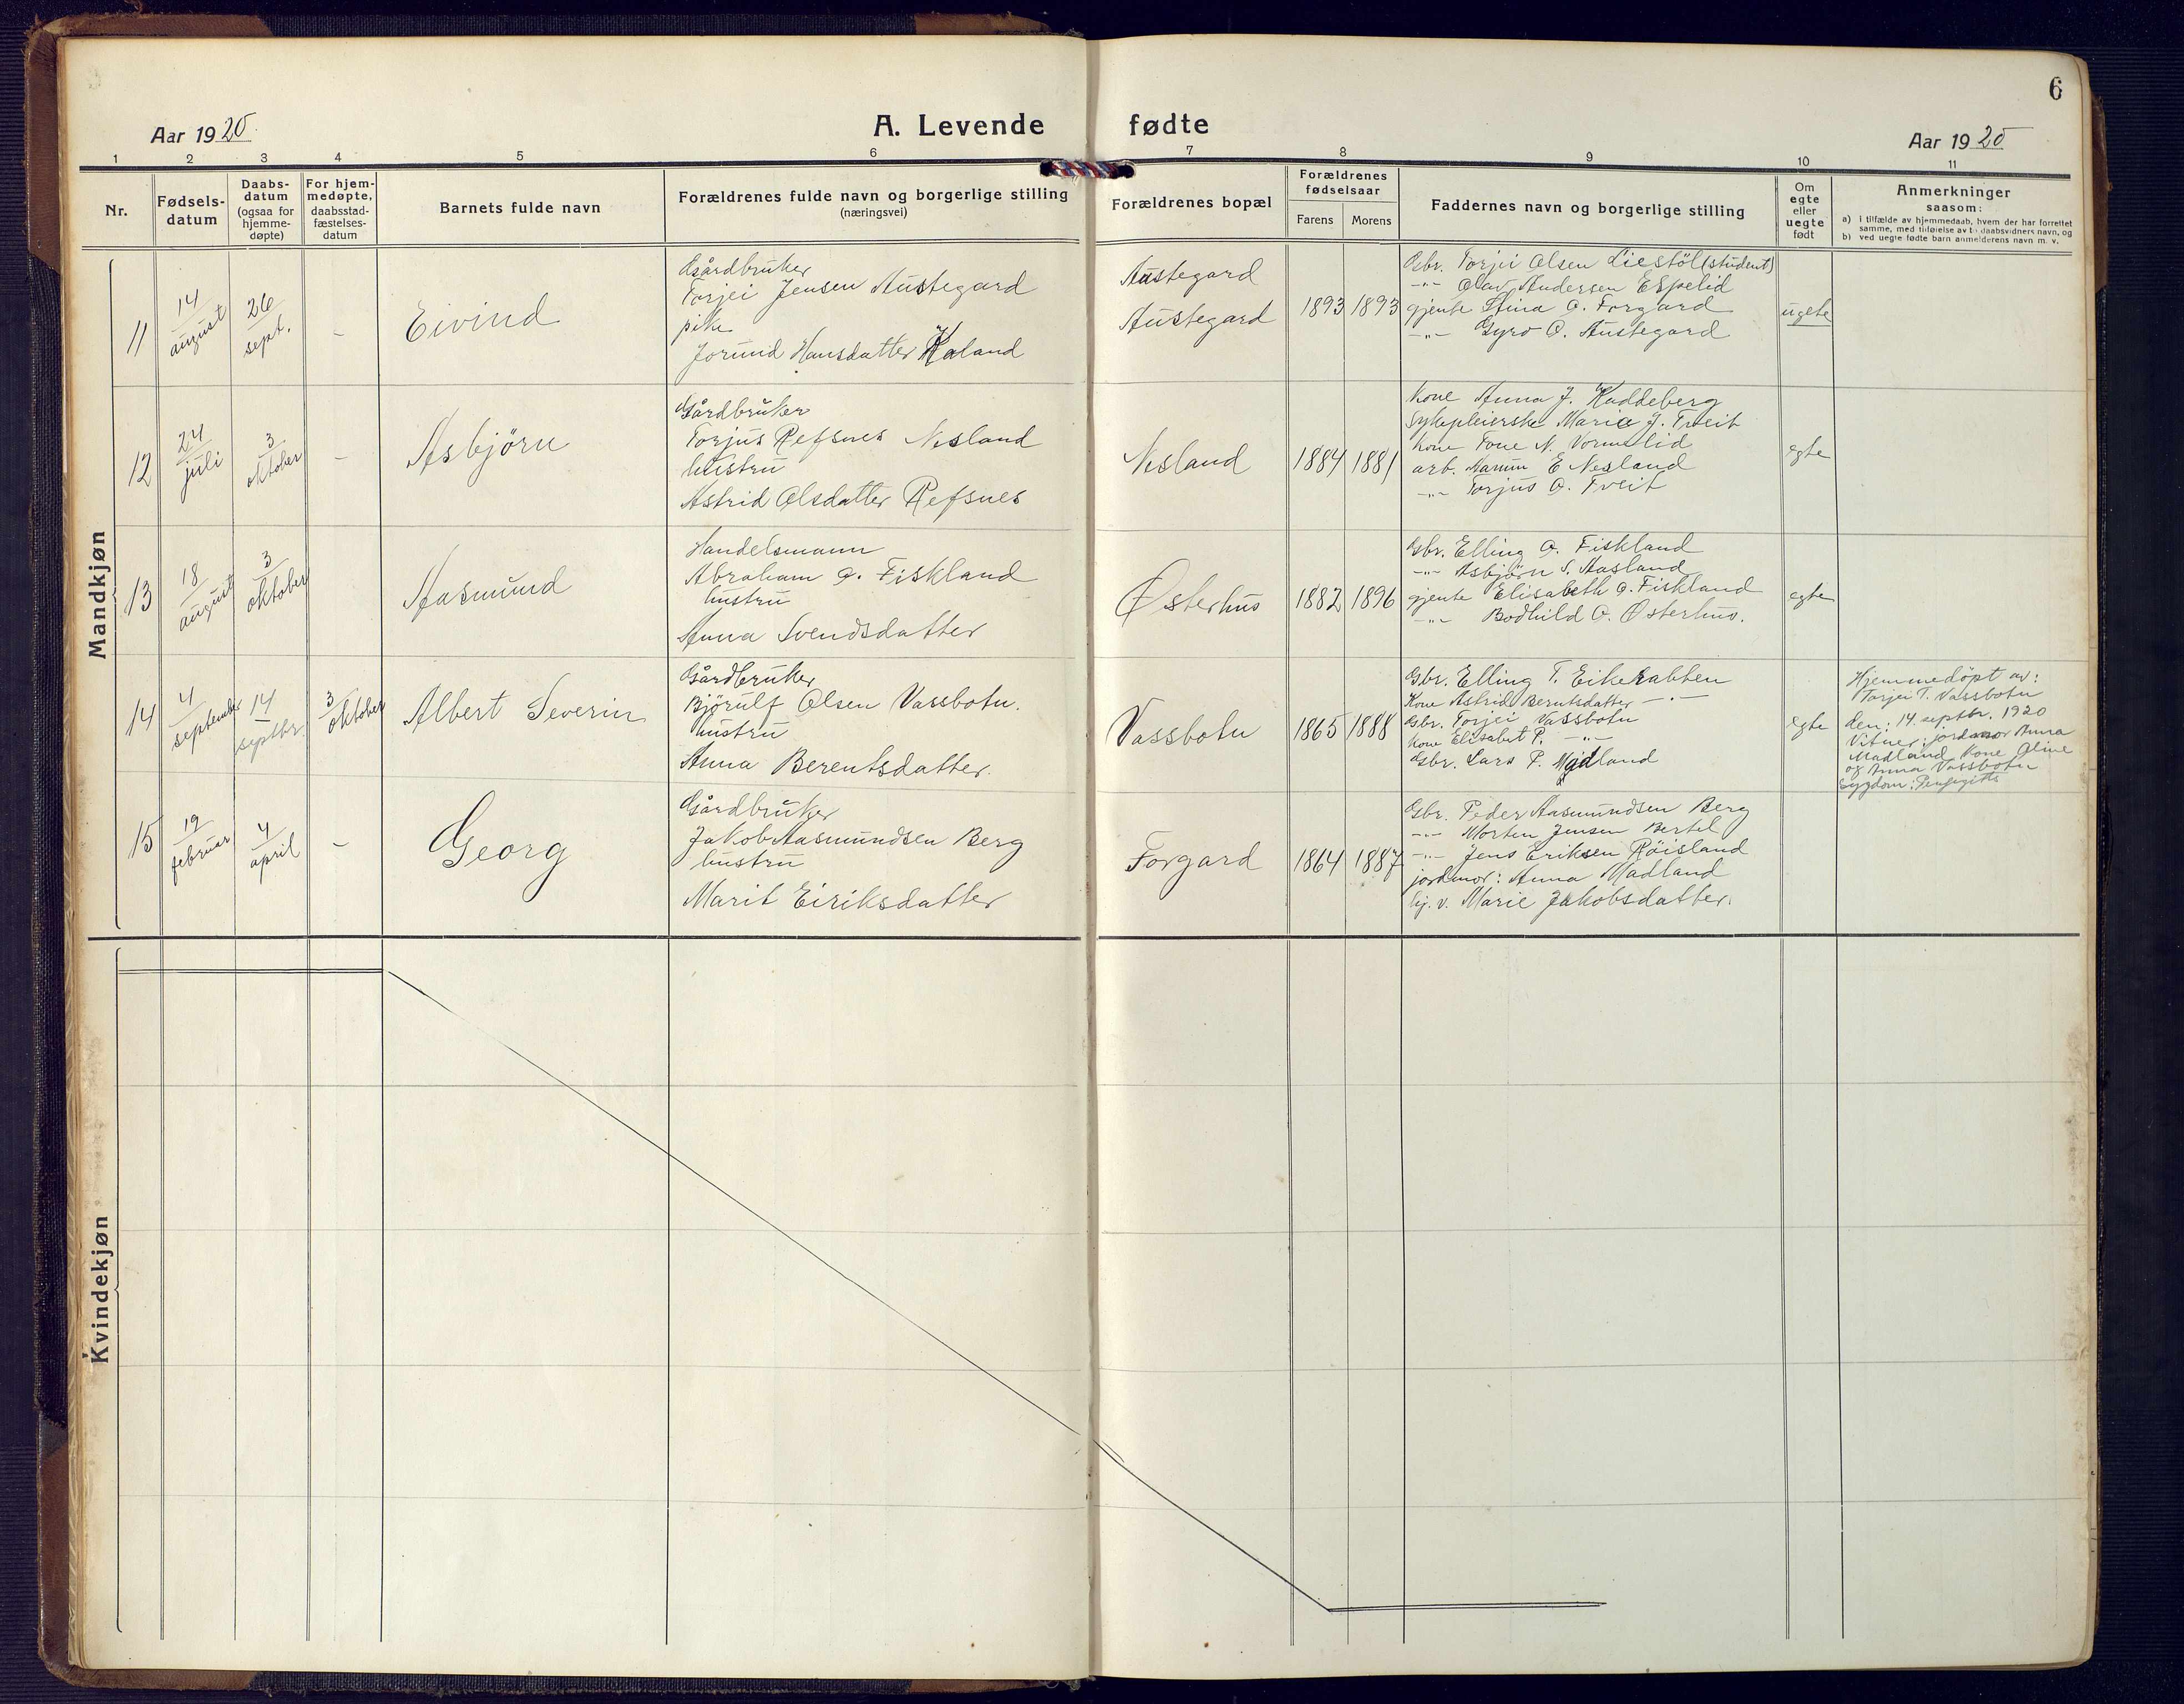 6
Aar 1920.
A. Levende fødte
Aar 1920
1 2 3 4 5 6 7 8 9 10 11
Nr.
Fødsels-
datum
Daabs-
datum
(ogsaa for
hjemme-
døpte)
For hjem-
medøpte,
daabsstad-
fæstelses-
datum
Barnets fulde navn
Forældrenes fulde navn og borgerlige stilling
(næringsvei)
Forældrenes bopæl
Forældrenes
fødselsaar
Farens
Morens
Faddernes navn og borgerlige stilling
Om
egte
eller
uegte
født
Anmerkninger
saasom:
a) i tilfælde av hjemmedaab, hvem der har forrettet
samme, med tilføielse av to daabsvidners navn, og
b) ved uegte fødte barn anmelderens navn m. v.
Mandkjøn
11
14
august
26
sept.
-
Eivind
Gårdbruker
Torjei Jensen Austegard
pike
Jorund Hansdatter Kaland
Austegard
Austegard
1893
1893
Gbr. Torjei Olsen Liestöl (student)
-"- Olav Andersen Espelid
gjente Stina O. Forgard
-"- Gyro O. Austegard
uegte
12
24
juli
3
oktober
-
Asbjörn
Gårdbruker
Torjus Refsnes Nesland
hustru
Astrid Olsdatter Refsnes
Nesland
1884
1881
Kone Anna J. Haddeberg
Sykepleierske Maria J. Tveit
Kone Tone N. Vormelid
arb. E Nesland
-"- Torjus O. Tveit
egte
13
18
august
3
oktober
Aasmund
Handelsmann
Abraham O. Fiskland
hustru
Anna Svendsdatter
Østerhus
1882
1896
Gbr. Elling O. Fiskland
-"- Asbjörn S. Aasland
gjente Elisabeth O. Fiskland
-"- Bodhild O. Østerhus.
egte
14
4
september
14
septbr.
3
oktober
Albert Severin
Gårdbruker
Björulf Olsen Vassbotn.
hustru
Anna Berentsdatter.
Vassbotn
1865
1888
Gbr. Elling T. Eikerabben
Kone Astrid Berntsdatter -"-
Gbr. Torjei Vassbotn
Kone Elisabet P. -"-
Gbr. Lars P. Mydland
egte
Hjemmedöpt av:
Torjei T. Vassbotn
den: 14. septbr. 1920
Vitner: jordmor Anna
Madland, kone Oline
og Anna Vassbotn
Sygdom:
15
19
februar
4
april
-
Georg
Gårdbruker
Jakob Aasmundsen Berg
hustru
Marit Eiriksdatter
Forgard
1864
1887
Gbr. Peder Aasmundsen Berg
-"- Morten Jensen Bertel
-"- Jens Eriksen Röisland
jordmor: Anna Madland
hj. v. Marie Jakobsdatter.
Kvindekjøn